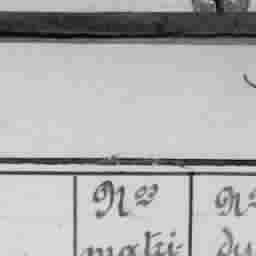 Nos Nos
matri- du